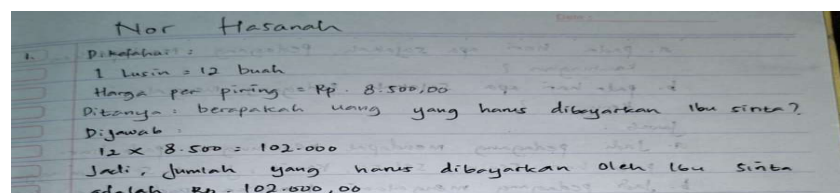 Nor Hasanah
1. Diketahui :
1 Lusin = 12 buah
Harga per piring = Rp. 8.500,00
Ditanya : berapakah uang yang harus dibayarkan Ibu sinta?
Dijawab :
12 x 8.500 = 102.000
Jadi, Jumlah yang harus dibayarkan oleh Ibu Sinta
adalah Rp. 102.000,00